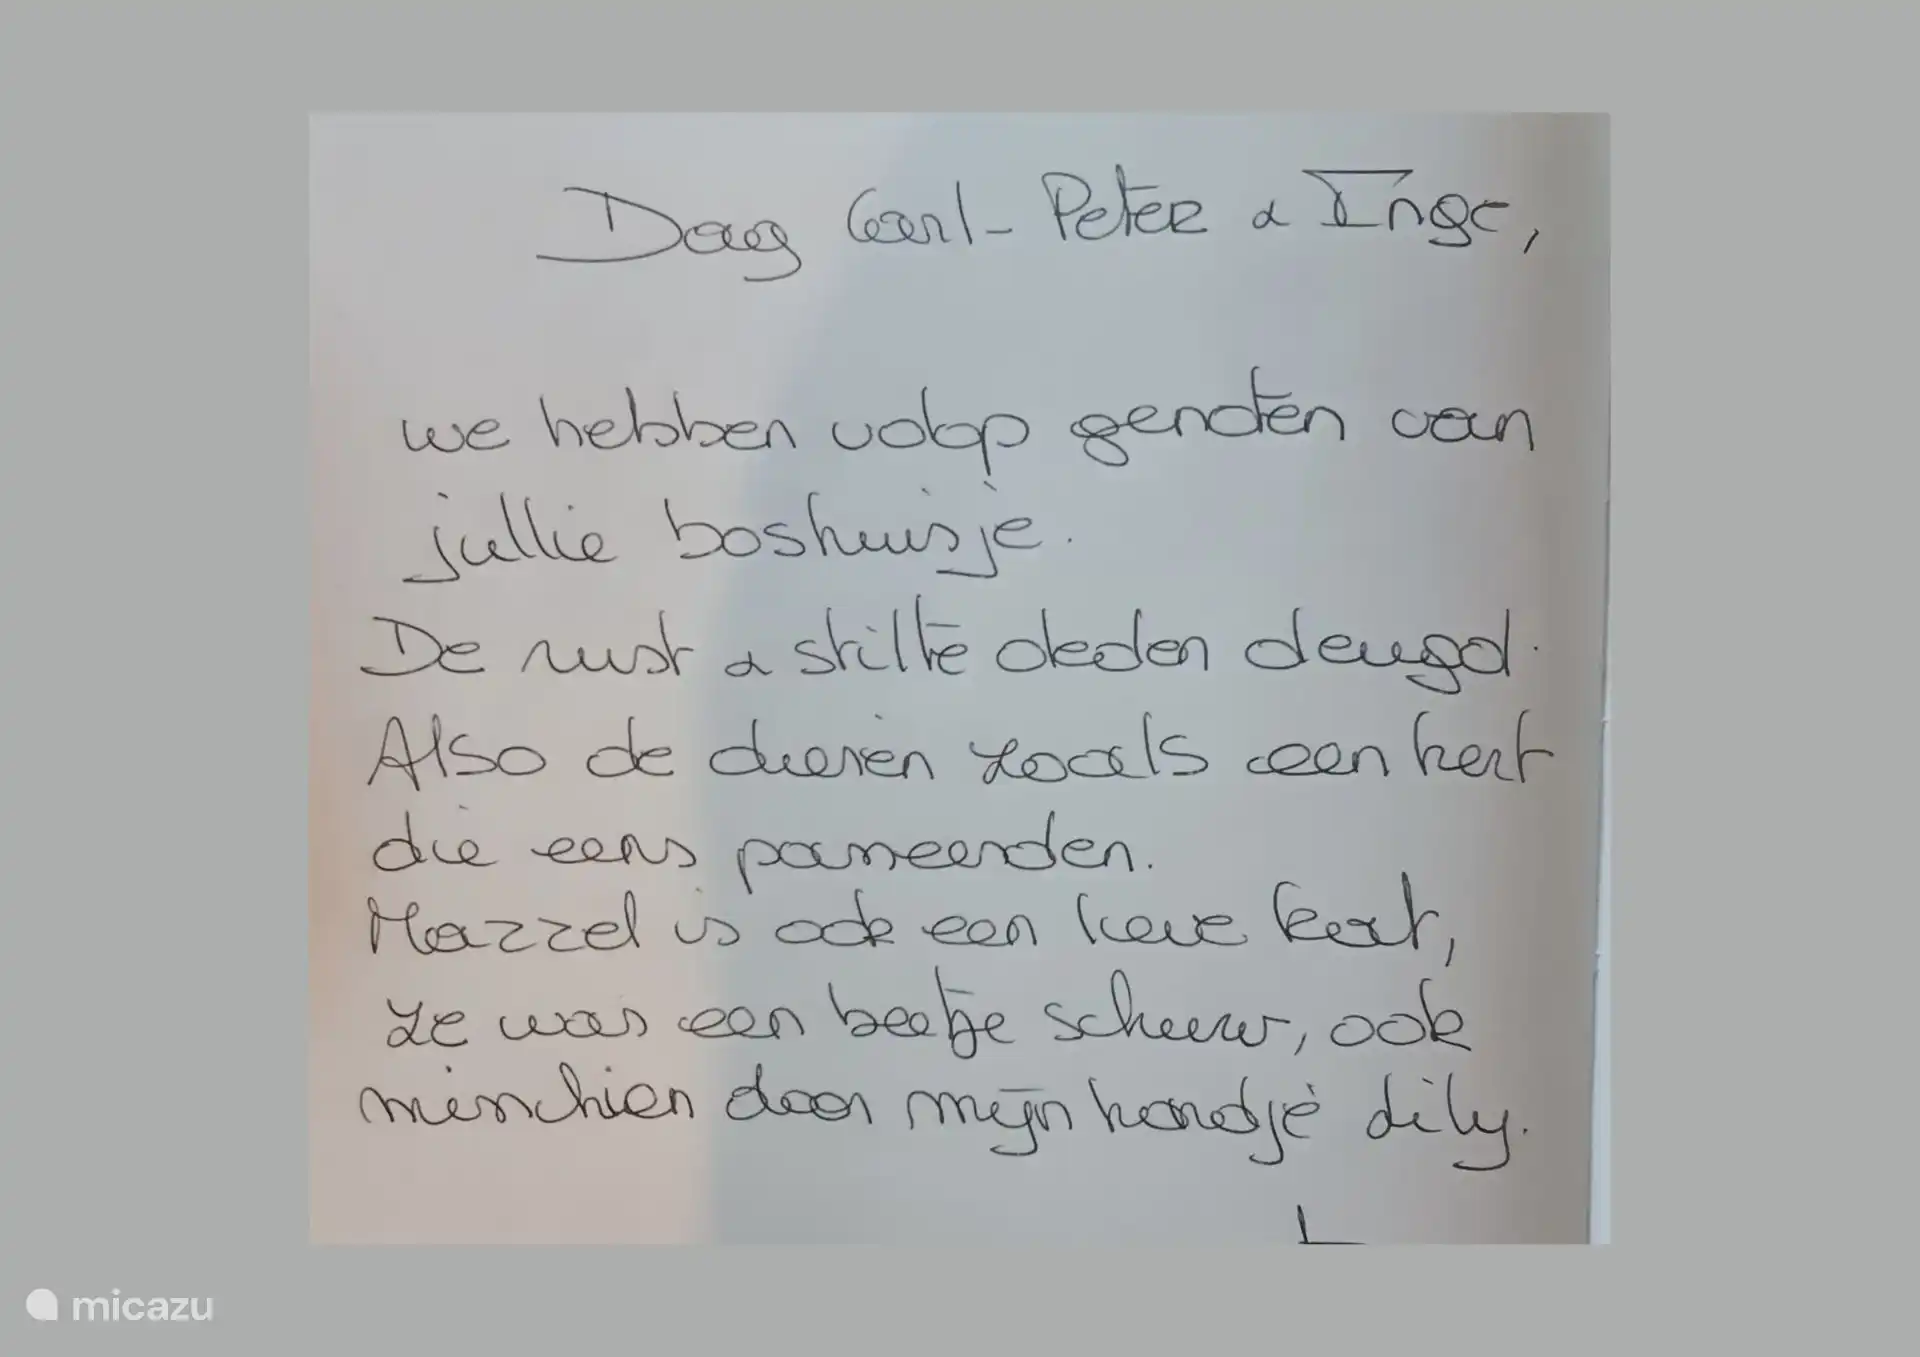 Dag Carl-Peter & Inge,
we hebben volop genoten van
jullie boshuisje.
De rust & stilte deden deugd.
Also de dieren zoals een hert
die eens passeerden.
Mazzel is ook een lieve kat,
ze was een beetje schuw, ook
misschien door mijn hondje dily.
micazu